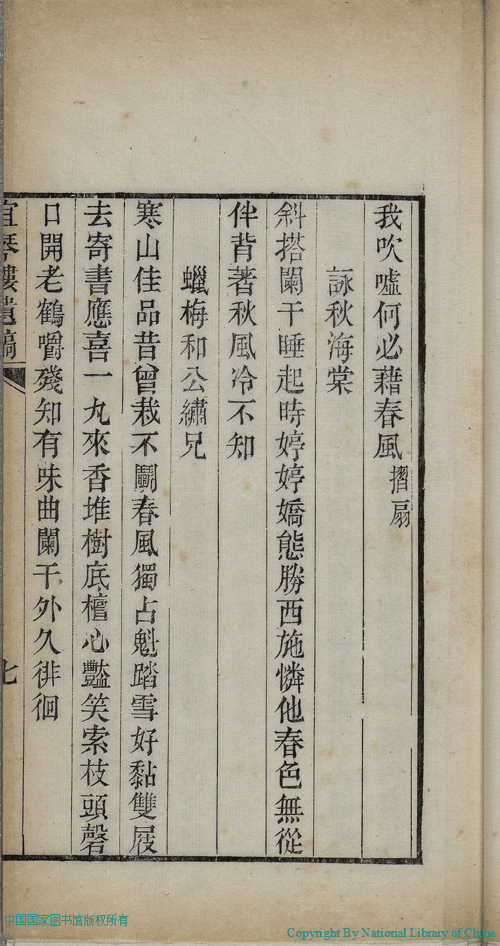 我吹噓何必藉春風摺扇
詠秋海棠
斜搭闌干睡起時婷婷嬌態勝西施憐他春色無從
伴背著秋風冷不知
蠟梅和公繡兄
寒山佳品昔曾栽不鬭春風獨占魁踏雪好黏雙屐
去寄書應喜一丸來香堆樹底檀心豔笑索枝頭磬
口開老鶴嚼殘知有味曲闌干外久徘徊
宜琴樓遺稿
七
中国国家图书馆版权所有
Copyright By National Library of China